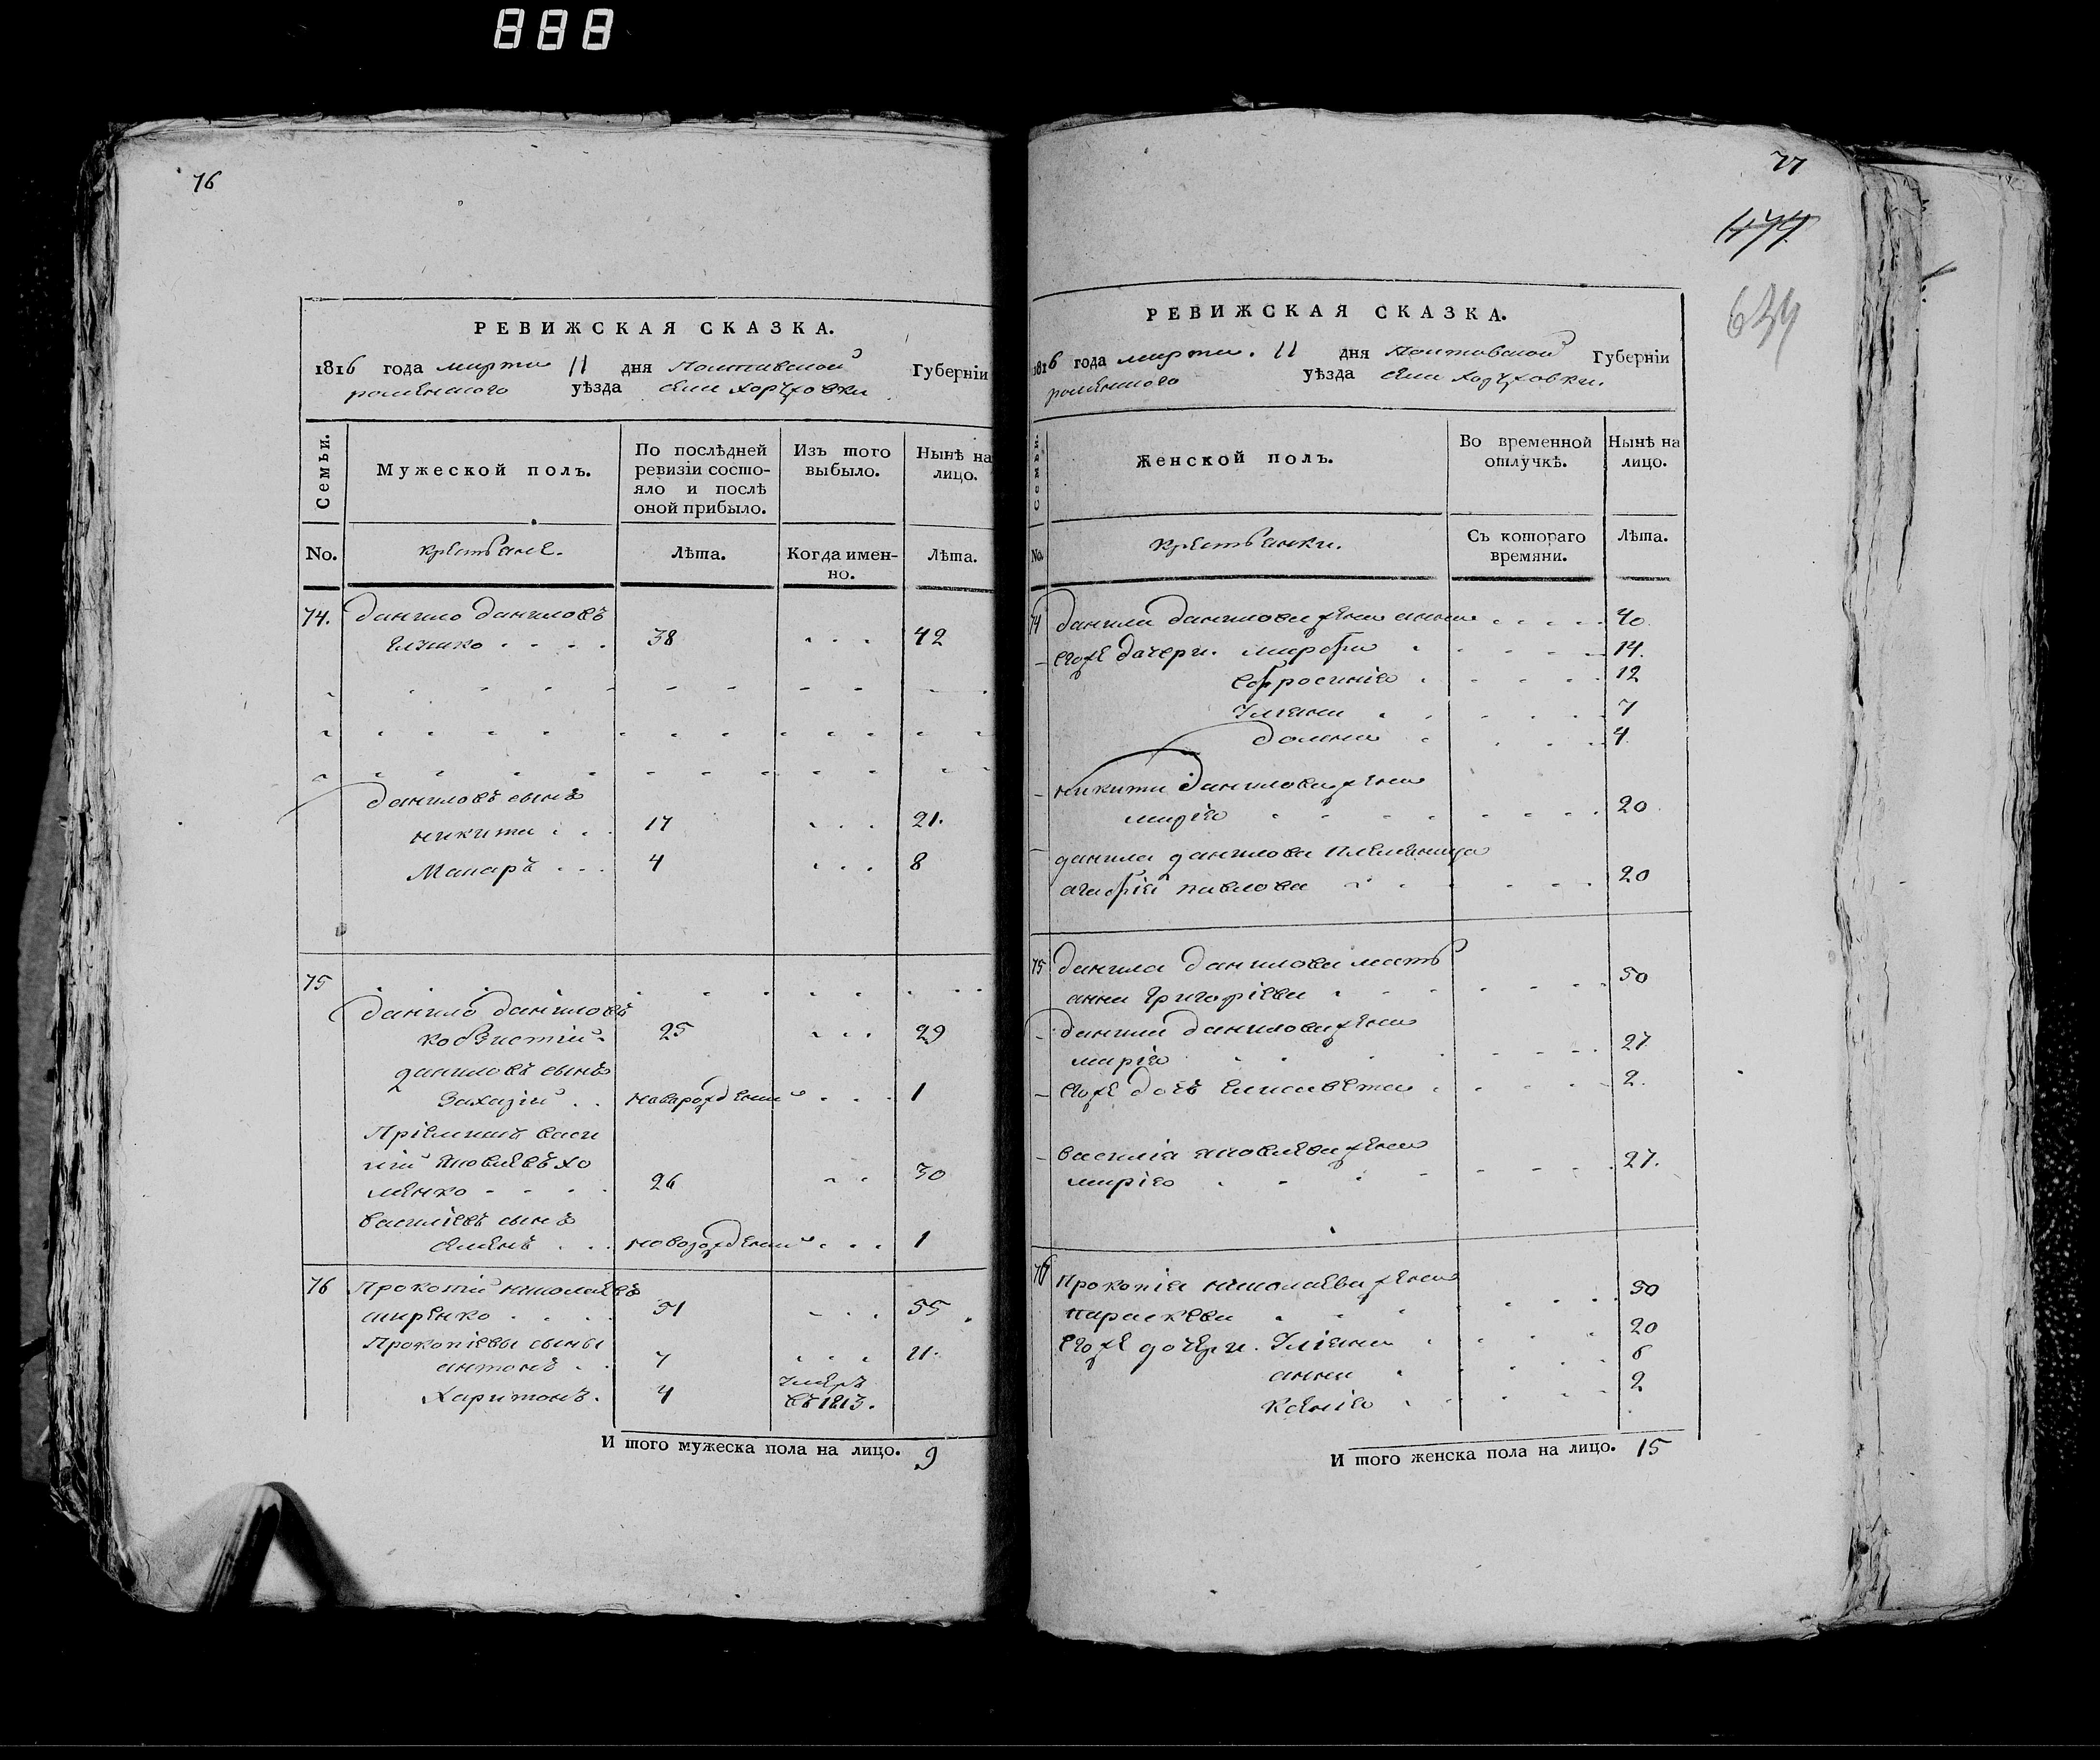 888
76
РЕВИЖСКАЯ СКАЗКА.
1816 года марта 11 дня Полтавской Губерніи
роменского уѣзда села хоруховки
Семьи. Мужеской полъ. По послѣдней ревизіи состояло и послѣ оной прибыло. Изъ того выбыло. Нынѣ на лицо.
No. крестьяне. Лѣта. Когда именно. Лѣта.
74. данило даниловъ
38 42
даниловъ сынъ
никита 17 21.
Макаръ 4 8
75
данило даниловъ
25 29
даниловъ сынъ
новорожденный 1
Пріемышъ васи
лій яковлевъ хо
менко 26 30
василіевъ сынъ
семенъ новорожденный 1
76 Прокопій николаевъ
ширенко 51 55
Прокопіевы сыны
антонъ 7 11.
Харитонъ. 4 умеръ
въ 1813.
И того мужеска пола на лицо. 9
77
634
РЕВИЖСКАЯ СКАЗКА.
1816 года марта. 11 дня Полтавской Губерніи
роменского уѣзда села хоруховки.
Семьи. Женской полъ. Во временной отлучкѣ. Нынѣ на лицо.
No. крестьянки. Съ котораго времяни. Лѣта.
74 данила данилова жена анна 40
егоже дочери. марфа 14.
ефросинія 12
Уліяна 7
домна 4.
никиты данилова жена
марія 20
данила данилова племяница
агафія павлова 20
75 данила данилова мать
анна григоріева 50
данила данилова жена
марія 27
егоже дочъ елисавета 2.
василія яковлева жена
марія 27.
76 прокопія николаева жена
параскева 50
егоже дочери. Уліяна 20
анна 6
Ксенія 2
И того женска пола на лицо. 15